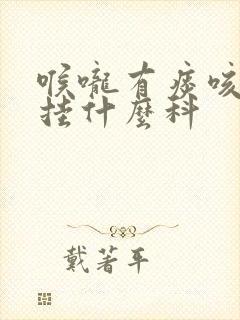 喉嚨有痰咳
挂什麼科
戴著平